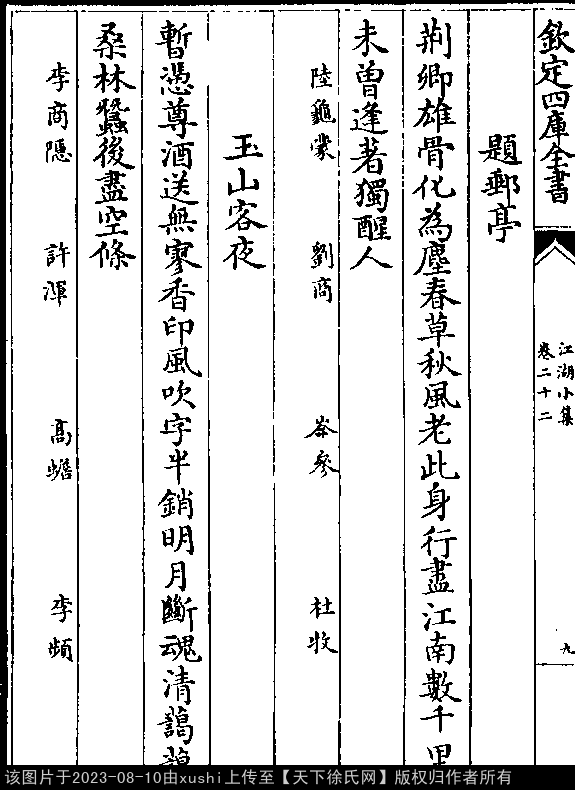 欽定四庫全書
江湖小集
卷二十二
九
題郵亭
荆卿雄骨化為塵春草秋風老此身行盡江南數千里
未曾逢著獨醒人
陸龜蒙 劉商 岑參 杜牧
玉山客夜
暫憑尊酒送無寥香印風吹字半銷明月斷魂清藹藹
桑林蠶後盡空條
李商隱 許渾 高蟾 李頻
该图片于2023-08-10由xushi上传至【天下徐氏网】版权归作者所有